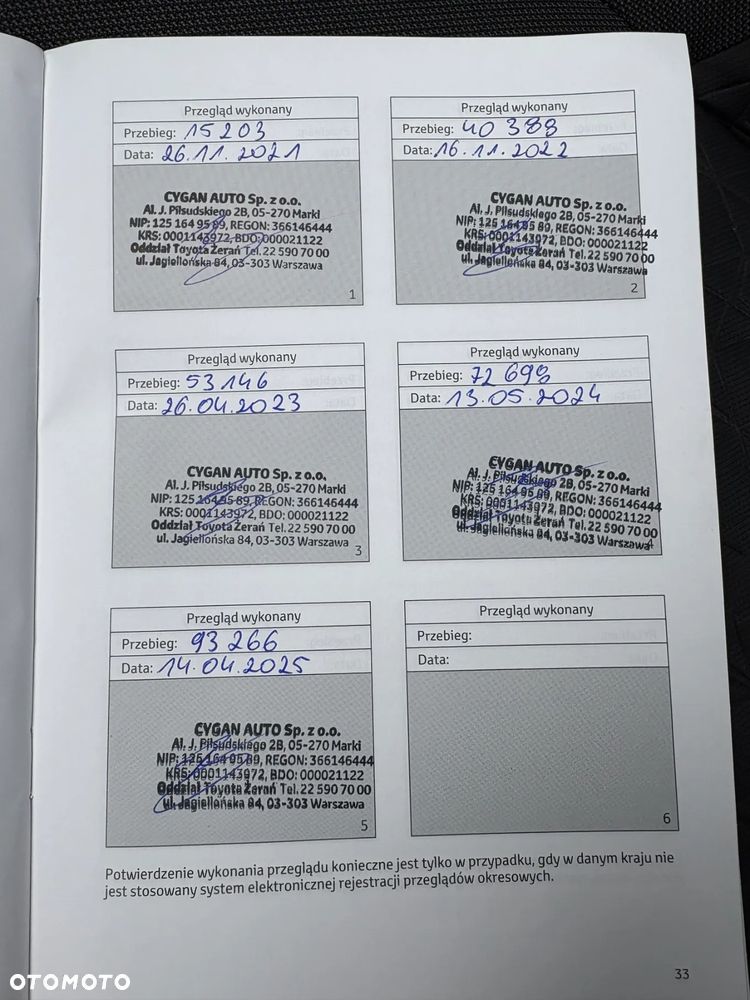 Przegląd wykonany
Przebieg: 15 203
Data: 26.11.2021
CYGAN AUTO Sp. z o.o.
Al. J. Piłsudskiego 2B, 05-270 Marki
NIP: 125 164 95 89, REGON: 366146444
KRS: 0001143972, BDO: 000021122
Oddział Toyota Żerań Tel. 22 590 70 00
ul. Jagiellońska 84, 03-303 Warszawa
1
Przegląd wykonany
Przebieg: 40 388
Data: 16.11.2022
CYGAN AUTO Sp. z o.o.
Al. J. Piłsudskiego 2B, 05-270 Marki
NIP: 125 164 95 89, REGON: 366146444
KRS: 0001143972, BDO: 000021122
Oddział Toyota Żerań Tel. 22 590 70 00
ul. Jagiellońska 84, 03-303 Warszawa
2
Przegląd wykonany
Przebieg: 53 146
Data: 26.04.2023
CYGAN AUTO Sp. z o.o.
Al. J. Piłsudskiego 2B, 05-270 Marki
NIP: 125 164 95 89, REGON: 366146444
KRS: 0001143972, BDO: 000021122
Oddział Toyota Żerań Tel. 22 590 70 00
ul. Jagiellońska 84, 03-303 Warszawa
3
Przegląd wykonany
Przebieg: 72 698
Data: 13.05.2024
CYGAN AUTO Sp. z o.o.
Al. J. Piłsudskiego 2B, 05-270 Marki
NIP: 125 164 95 89, REGON: 366146444
KRS: 0001143972, BDO: 000021122
Oddział Toyota Żerań Tel. 22 590 70 00
ul. Jagiellońska 84, 03-303 Warszawa
4
Przegląd wykonany
Przebieg: 93 266
Data: 14.04.2025
CYGAN AUTO Sp. z o.o.
Al. J. Piłsudskiego 2B, 05-270 Marki
NIP: 125 164 95 89, REGON: 366146444
KRS: 0001143972, BDO: 000021122
Oddział Toyota Żerań Tel. 22 590 70 00
ul. Jagiellońska 84, 03-303 Warszawa
5
Przegląd wykonany
Przebieg:
Data:
6
Potwierdzenie wykonania przeglądu konieczne jest tylko w przypadku, gdy w danym kraju nie
jest stosowany system elektronicznej rejestracji przeglądów okresowych.
33
OTOMOTO